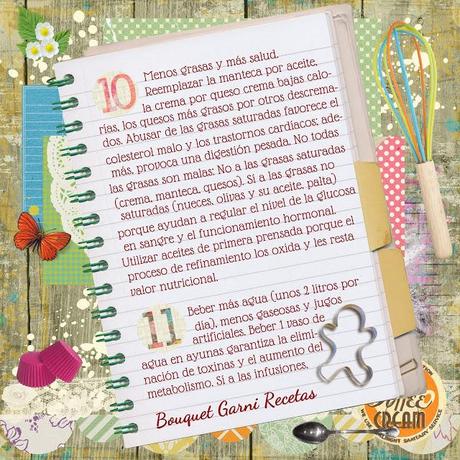 10
Menos grasas y más salud.
Reemplazar la manteca por aceite,
la crema por queso crema bajas calo-
rías, los quesos más grasos por otros descrema-
dos. Abusar de las grasas saturadas favorece el
colesterol malo y los trastornos cardíacos; ade-
más, provoca una digestión pesada. No todas
las grasas son malas: No a las grasas saturadas
(crema, manteca, quesos). Sí a las grasas no
saturadas (nueces, olivas y su aceite, palta)
porque ayudan a regular el nivel de la glucosa
en sangre y el funcionamiento hormonal.
Utilizar aceites de primera prensada porque el
proceso de refinamiento los oxida y les resta
valor nutricional.
11
Beber más agua (unos 2 litros por
día), menos gaseosas y jugos
artificiales. Beber 1 vaso de
agua en ayunas garantiza la elimi-
nación de toxinas y el aumento del
metabolismo. Sí a las infusiones.
Bouquet Garni Recetas
CREAM